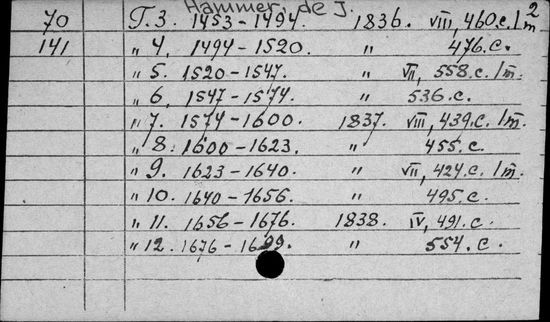 Hammer, de J.
2
70 T.3. 1453-1494. 1836. VIII, 460.c. 1 m
141 „ 4, 1494-1520. „ 476.c.
„ 5. 1520-1547. „ VII, 558.c. 1 m.
„ 6, 1547-1574. „ 536.c.
„ 7. 1574-1600. 1837. VIII, 439.c. 1 m.
„ 8. 1600-1623. „ 455.c.
„ 9. 1623-1640. „ VII, 424.c. 1 m.
„ 10. 1640-1656. „ 495.c.
„ 11. 1656-1676. 1838. IV, 491.c.
„ 12. 1676-1699. „ 554.c.